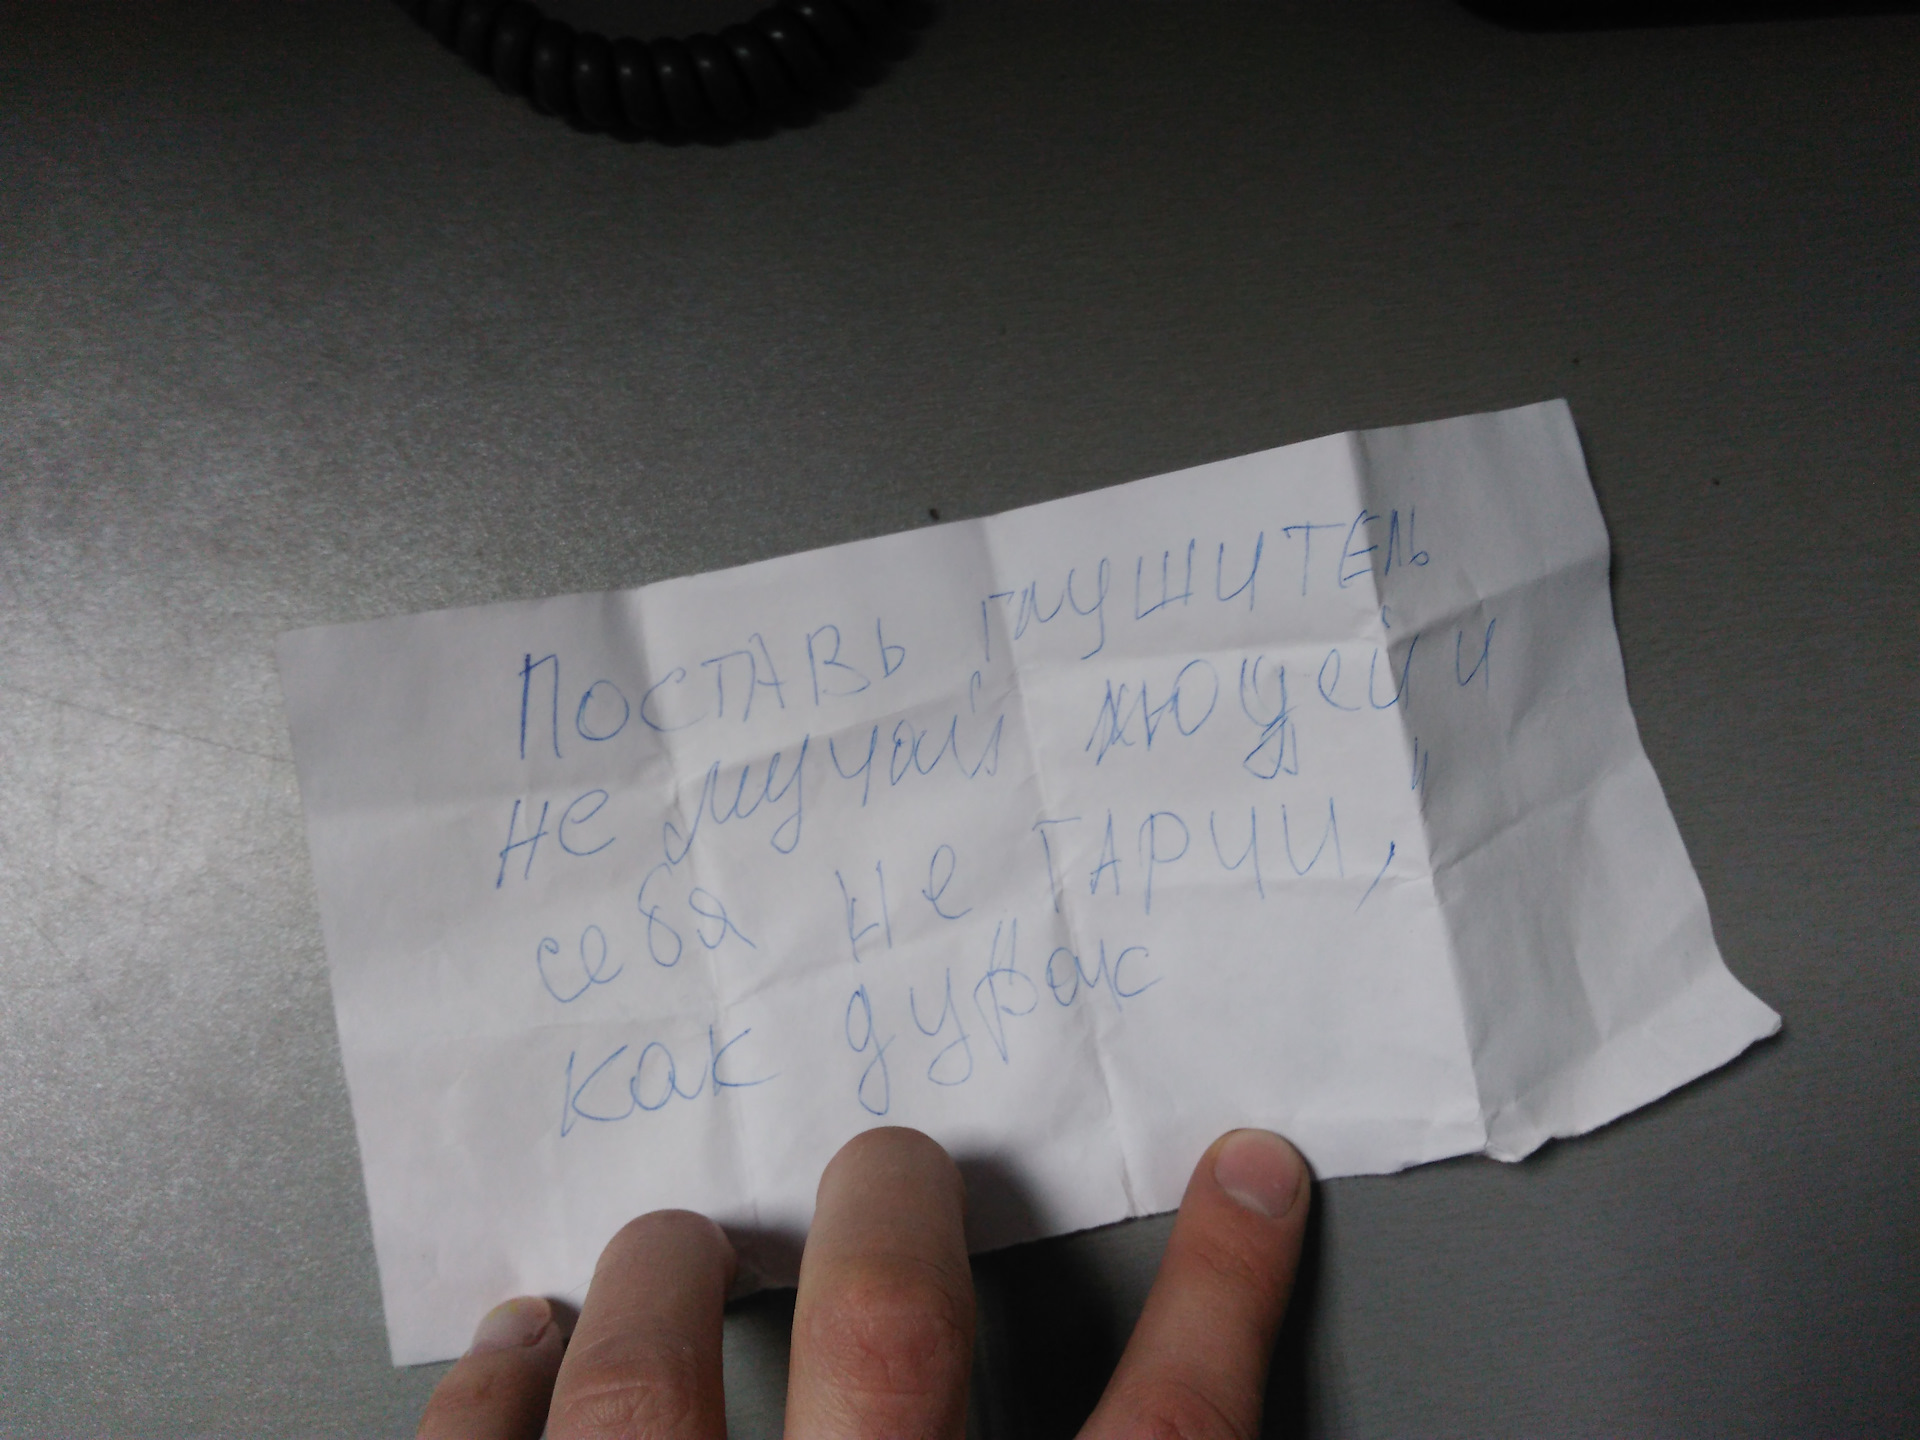 ПОСТАВЬ ГЛУШИТЕЛЬ
не мучай людей и
себя не ГАРЧИ,
как дурак